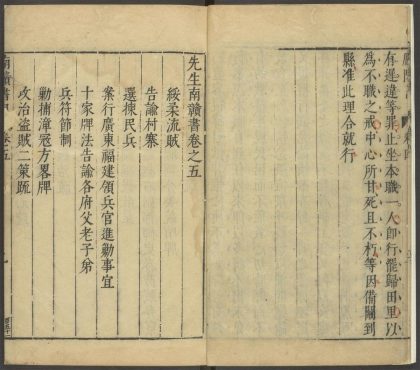 有遲違等罪止坐本職一人即行罷歸田里以
為不職之戒中心所甘死且不朽等因備關到
縣准此理合就行
先生南贛書卷之五
綏柔流賊
告諭村寨
選揀民兵
案行廣東福建領兵官進勦事宜
十家牌法告諭各府父老子弟
兵符節制
勦捕漳寇方畧牌
攻治盜賊二策疏
南贛書 卷五